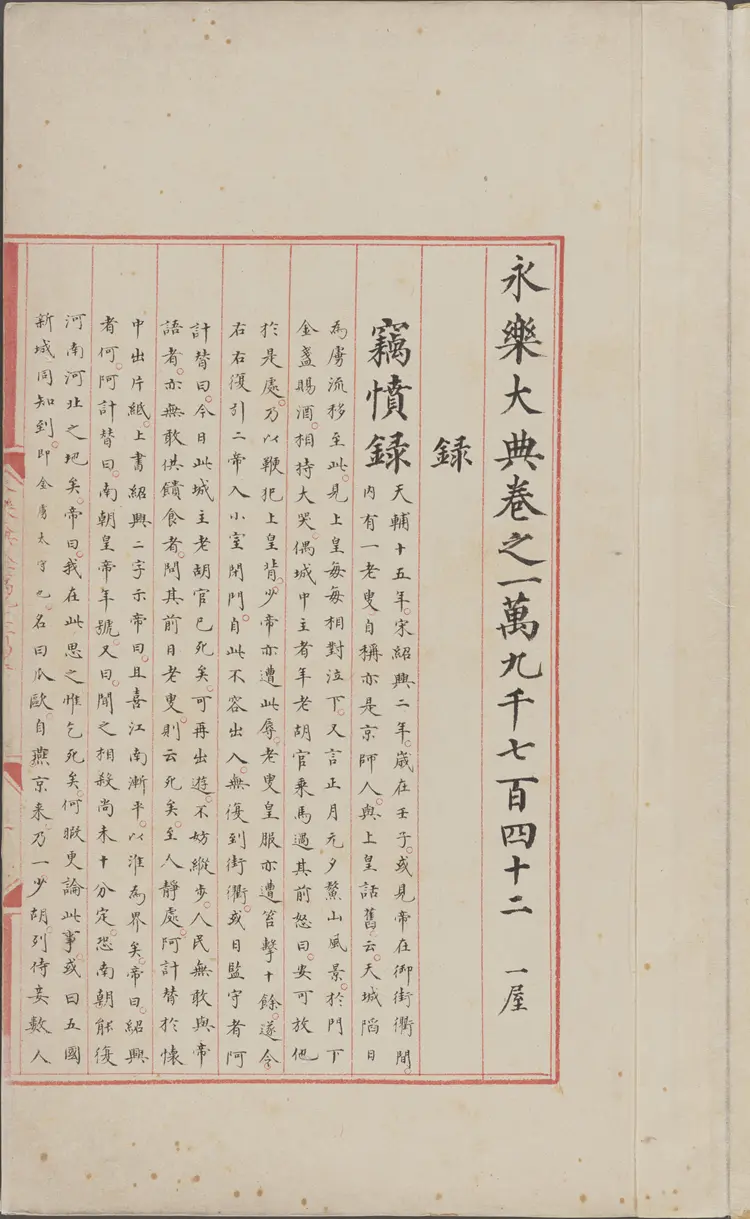 永樂大典卷之一萬九千七百四十二　一屋
錄
竊憤錄
天輔十五年。宋紹興二年。歲在壬子。或見帝在御街衢間。
內有一老叟自稱亦是京師人。與上皇話舊云。天城陷日
為虜流移至此。見上皇每每相對泣下。又言正月元夕鰲山風景。於門下
金盞賜酒。相持大哭。偶城中主者年老胡官乘馬過其前怒曰。安可放他
於是處。乃以鞭把上皇背。少帝亦遭此辱。老叟皇服亦遭笞擊十餘。遂令
右右復引二帝入小室閉門。自此不容出入。無復到街衢。或日監守者阿
計替曰。今日此城主老胡官已死矣。可再出遊。不妨縱步。人民無敢與帝
語者。亦無敢供饋食者。問其前日老叟。則云死矣。至人靜處。阿計替於懷
中出片紙。上書紹興二字示帝曰。且喜江南漸平。以淮為界矣。帝曰。紹興
者何。阿計替曰。南朝皇帝年號。又曰。聞之相殺尚未十分定。恐南朝能復
河南河北之地矣。帝曰。我在此思之惟乞死矣。何暇更論此事。或曰五國
新城同知到。即金虜太守也。名曰瓜歐。自燕京來。乃一少胡。列侍妾數人